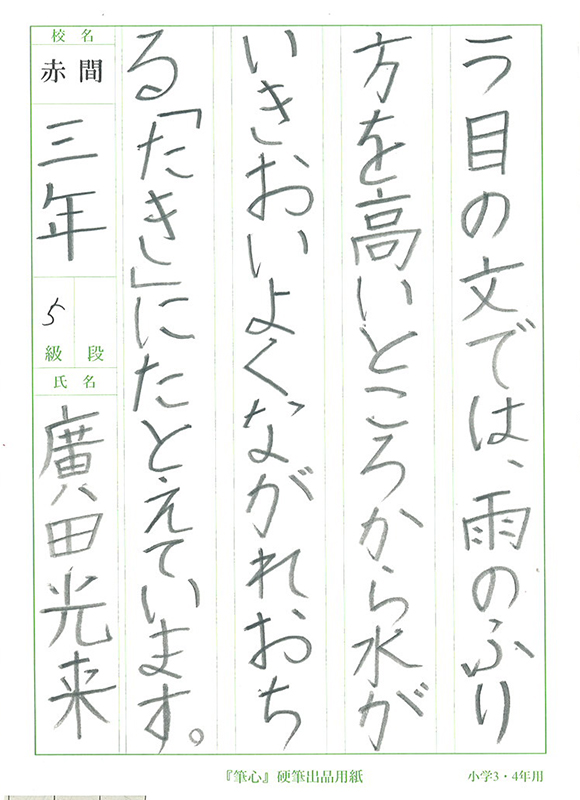 ラ目の文では、雨のふり
方を高いところから水が
いきおいよくながれおち
る「たき」にたとえています。
校名
赤間
三年
5
級 段
氏名
廣田光来
『筆心』硬筆出品用紙
小学3・4年用